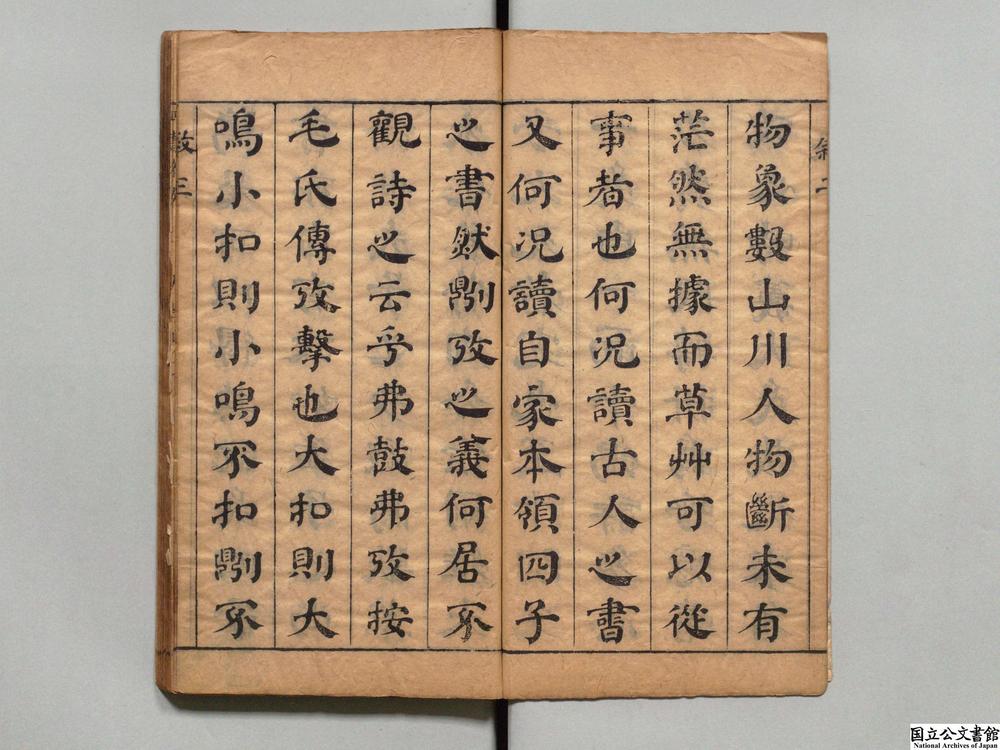 物象數山川人物斷未有
茫然無據而草艸可以從
事者也何况讀古人之書
又何况讀自家本領四子
之書然則攷之義何居不
觀詩之云乎弗鼓弗攷按
毛氏傳攷擊也大扣則大
鳴小扣則小鳴不扣則不
三
国立公文書館
National Archives of Japan